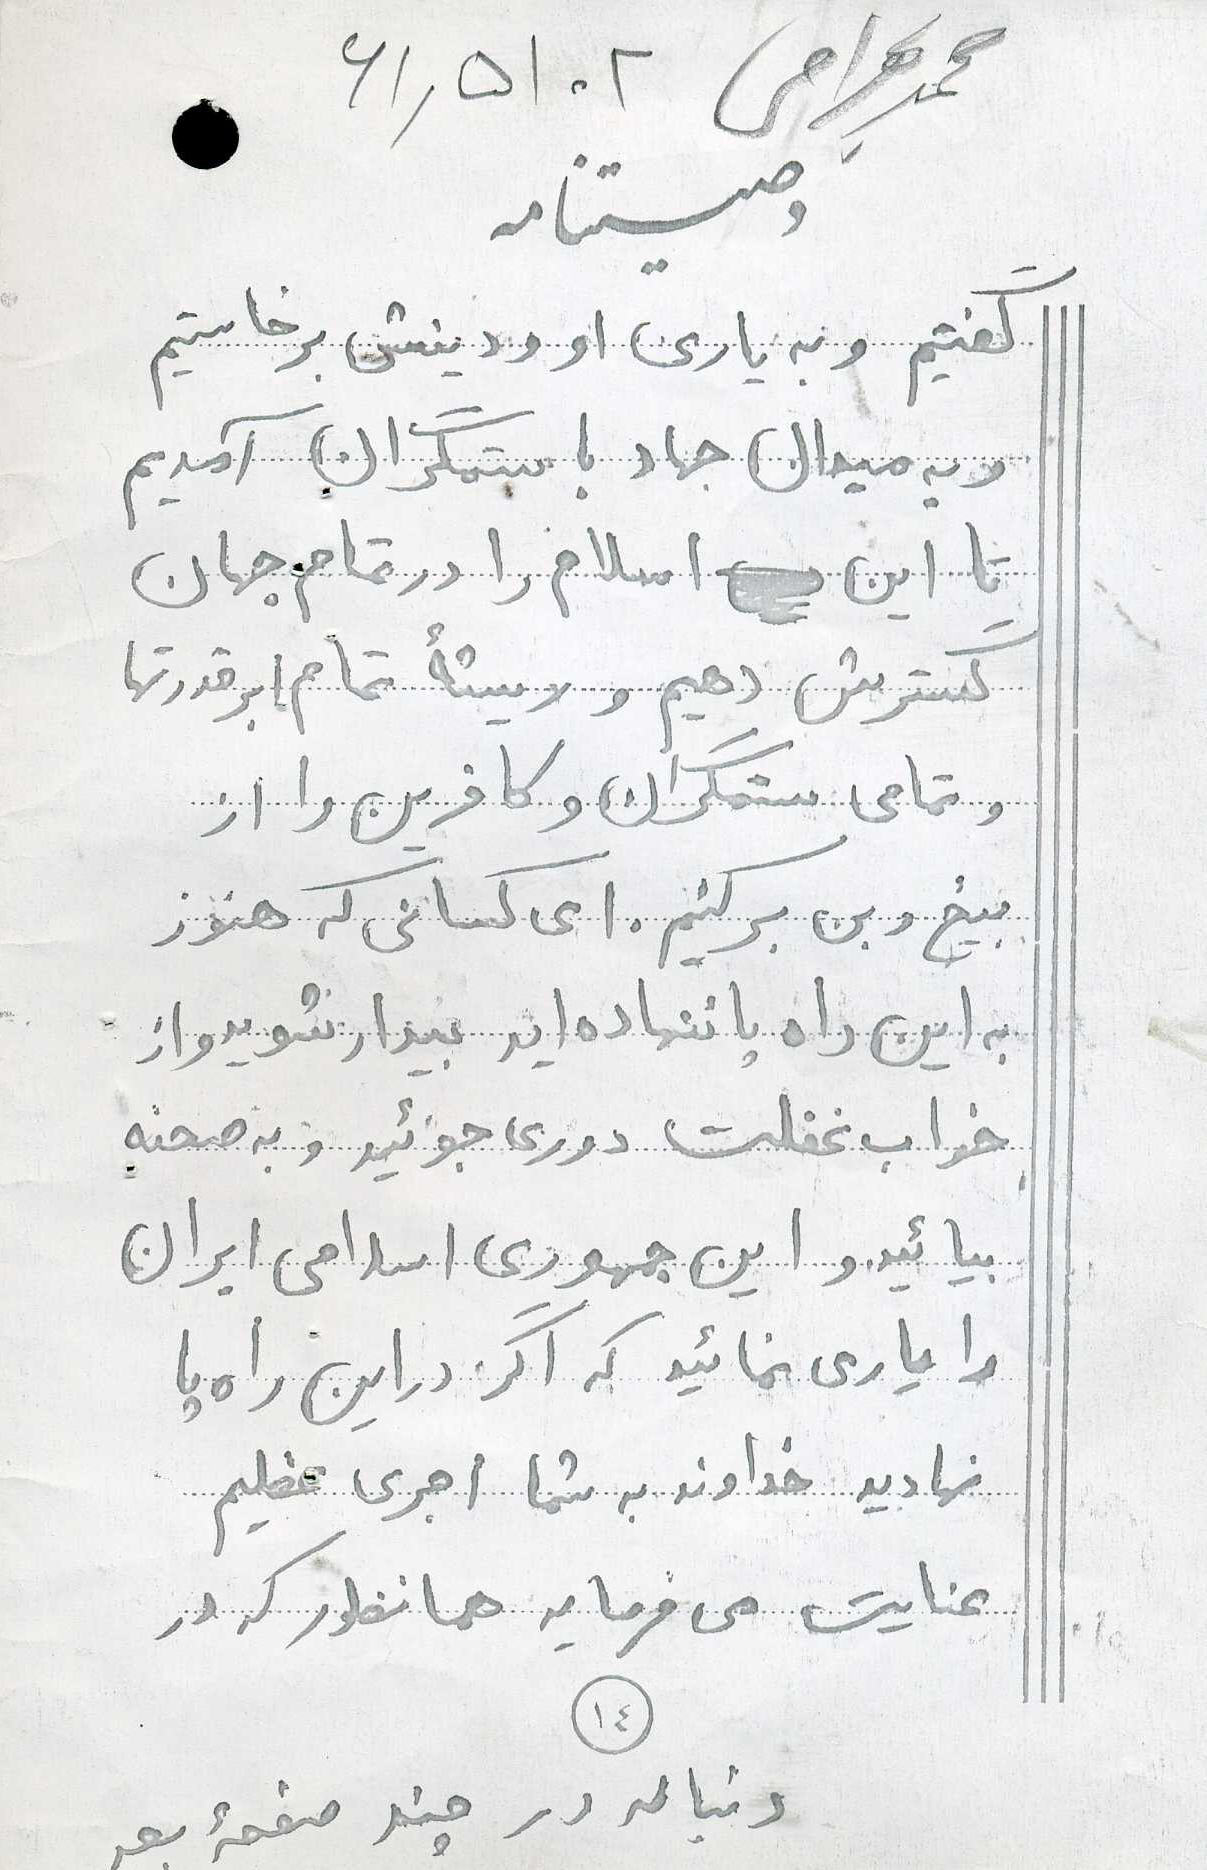 محمد بهرامی ۶۱/۵۱۰۲
وصیتنامه
گفتیم و به یاری او و دینش برخاستیم
و به میدان جهاد با ستمگران آمدیم
تا این اسلام را در تمام جهان
گسترش دهیم و ریشهٔ تمام ابرقدرتها
و تمامی ستمگران و کافرین را از
بیخ و بن برکنیم. ای کسانی که هنوز
به این راه پا ننهاده اید بیدار شوید و از
خواب غفلت دوری جوئید و به صحنه
بیائید و این جمهوری اسلامی ایران
را یاری نمائید که اگر در این راه پا
نهادید خداوند به شما اجری عظیم
عنایت می فرماید همانطور که در
۱٤
دنباله در چند صفحهٔ بعد